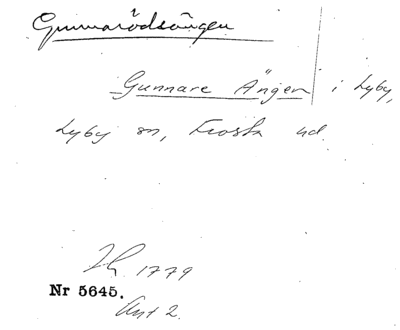 Gunnarödsängen
Gunnare Ängen i Lyby,
Lyby sn, Frosta hd.
1779
Nr 5645.
Akt 2.